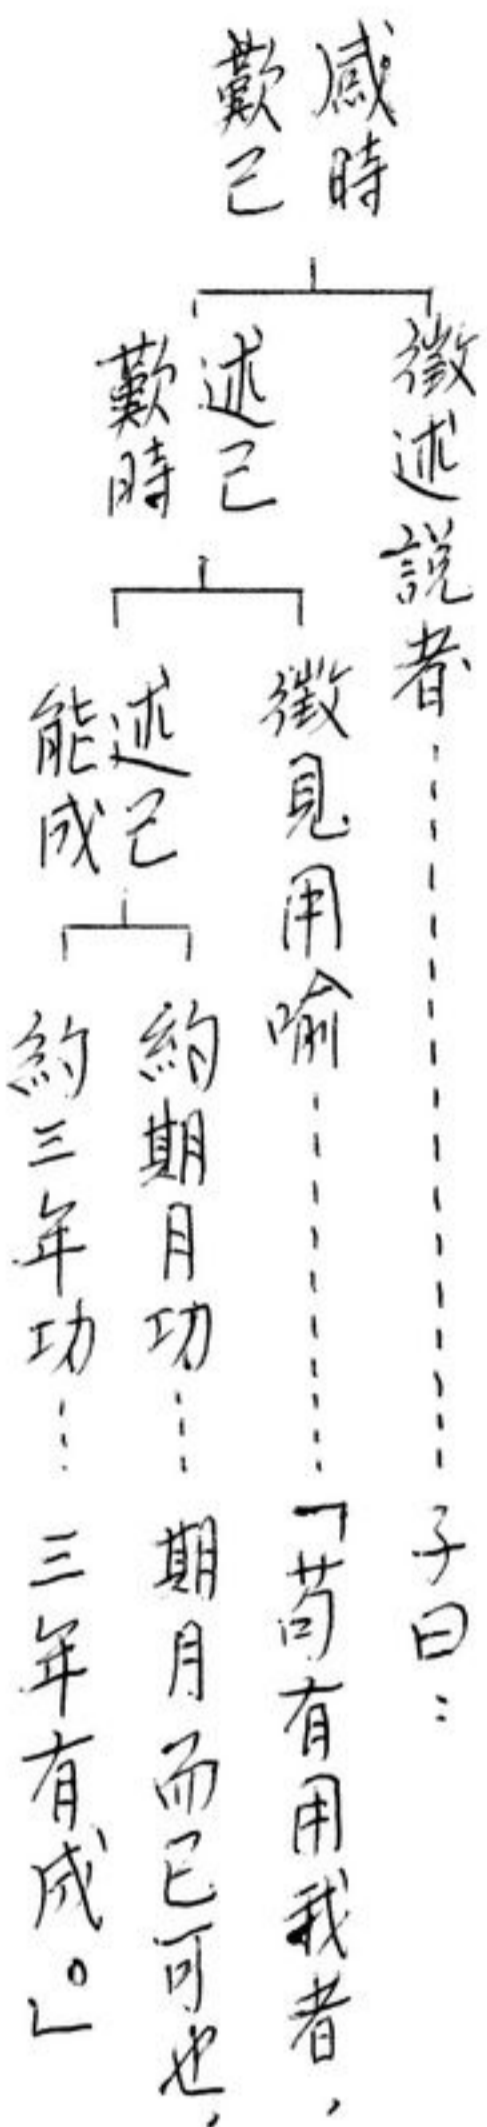 感時
歎己
徵述說者
子曰：
述己
歎時
徵見用喻
「苟有用我者，
述己
能成
約期月功
期月而已可也，
約三年功
三年有成。」